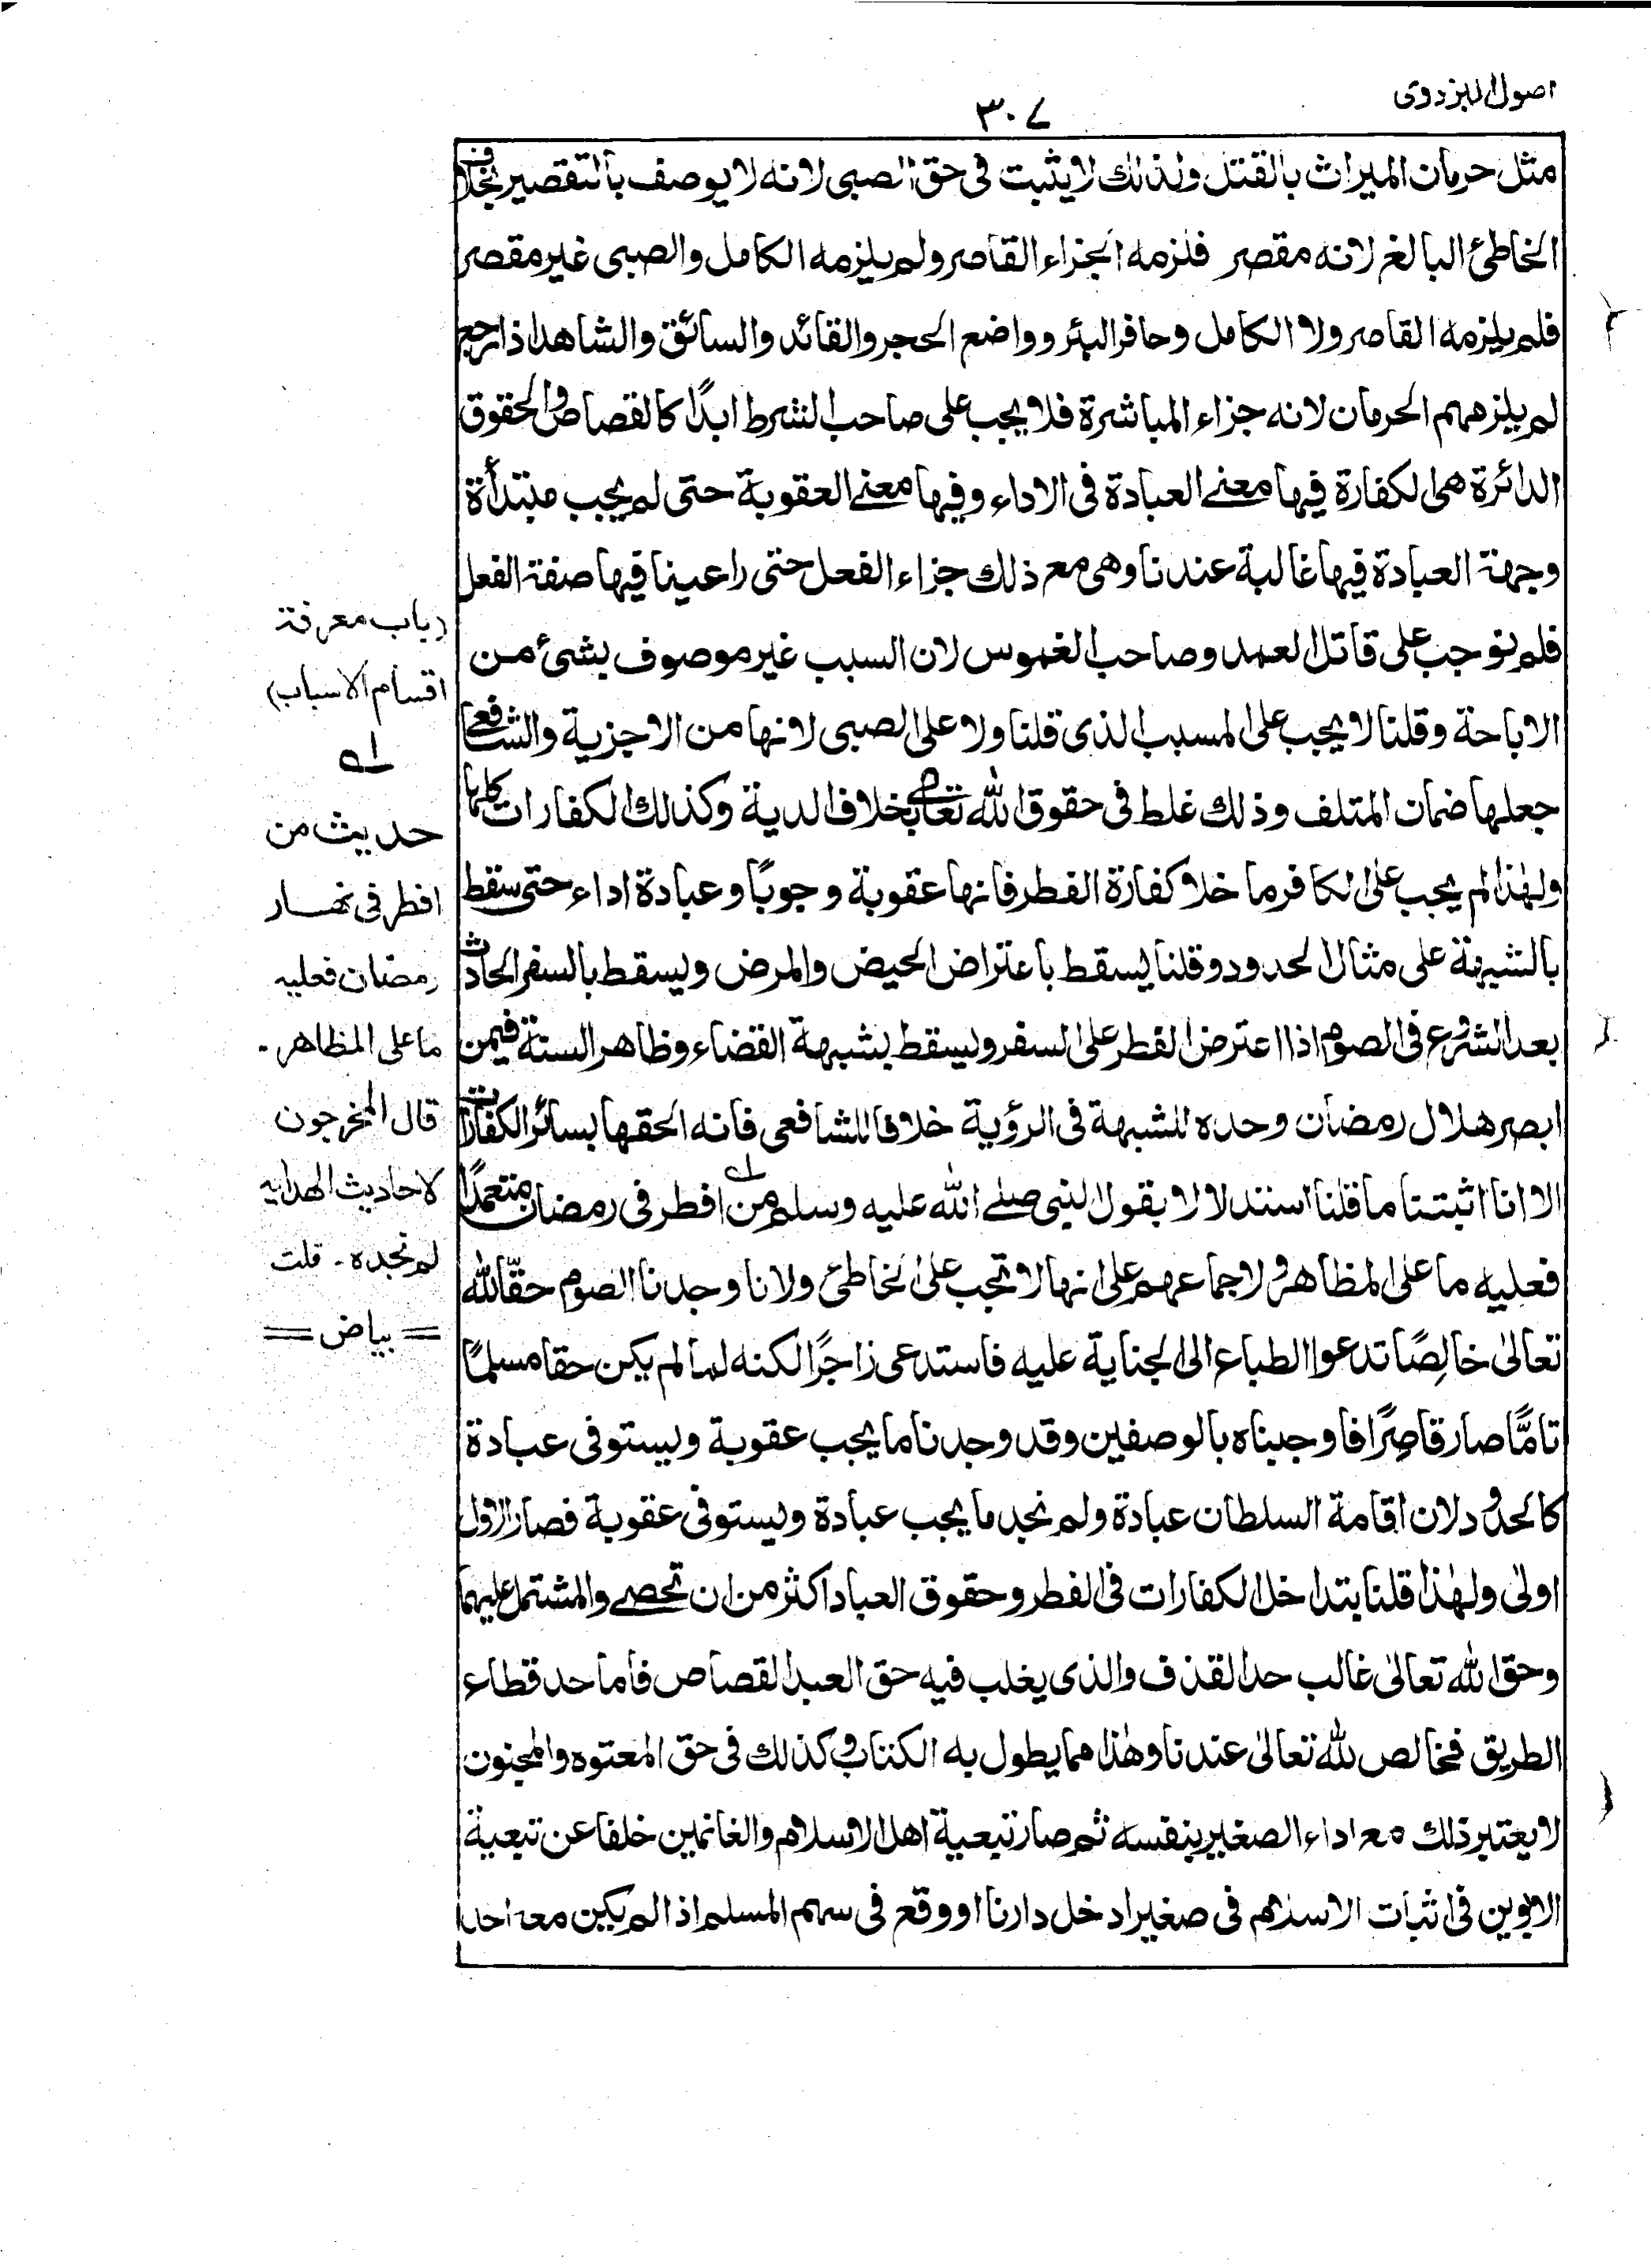 اصول البزدوی
٣٠٧
مثل حرمان الميراث بالقتل ولذلك لا يثبت فى حق الصبى لانه لا يوصف بالتقصير بخلاف
الخاطئ البالغ لانه مقصر فلزمه الجزاء القاصر ولم يلزمه الكامل والصبى غير مقصر
فلم يلزمه القاصر ولا الكامل وحافر البئر وواضع الحجر والقائد والسائق والشاهد اذا رجع
لم يلزمهم الحرمان لانه جزاء المباشرة فلا يجب على صاحب الشرط ابدًا كالقصاص والحقوق
الدائرة هى الكفارة فيها معنے العبادة فى الاداء وفيها معنے العقوبة حتى لم يجب مبتدأة
وجهة العبادة فيها غالبة عندنا وهى مع ذلك جزاء الفعل حتى راعينا فيها صفة الفعل
فلم نوجب على قاتل العمد وصاحب الغموس لان السبب غير موصوف بشئ من
الاباحة وقلنا لا يجب على المسبب الذى قلنا ولا على الصبى لانها من الاجزية والشافعے
جعلها ضمان المتلف وذلك غلط فى حقوق الله تعالى بخلاف الدية وكذلك الكفارات كلها
ولهٰذا لم يجب على الكافر ما خلا كفارة الفطر فانها عقوبة وجوبًا وعبادة اداء حتى سقط
بالشبهة على مثال الحدود وقلنا يسقط باعتراض الحيض والمرض ويسقط بالسفر الحادث
بعد الشروع فى الصوم اذا اعترض الفطر على السفر ويسقط بشبهة القضاء وظاهر السنة فيمن
ابصر هلال رمضان وحده للشبهة فى الرؤية خلافا للشافعى فانه الحقها بسائر الكفارات
الا انا اثبتنا ما قلنا استدلالا بقول النبى صلے الله عليه وسلم من افطر فى رمضان متعمدًا
فعليه ما على المظاهر ولاجماعهم على انها لا تجب على الخاطئ ولانا وجدنا الصوم حقًّا لله
تعالىٰ خالِصًا تدعوا الطباع الى الجناية عليه فاستدعى زاجرًا لكنه لما لم يكن حقا مسلمًا
تامًّا صار قاصِرًا فاوجبناه بالوصفين وقد وجدنا ما يجب عقوبة ويستوفى عبادة
كالحدود لان اقامة السلطان عبادة ولم نجد ما يجب عبادة ويستوفى عقوبة فصار الاول
اولىٰ ولهٰذا قلنا بتداخل الكفارات فى الفطر وحقوق العباد اكثر من ان تحصے والمشتمل عليهما
وحق الله تعالىٰ غالب حد القذف والذى يغلب فيه حق العبد القصاص فاما حد قطاع
الطريق فخالص لله تعالىٰ عندنا وهٰذا مما يطول به الكتاب وكذلك فى حق المعتوه والمجنون
لا يعتبر ذلك مع اداء الصغير بنفسه ثم صار تبعية اهل الاسلام والغانمين خلفا عن تبعية
الابوين فى اثبات الاسلام فى صغير ادخل دارنا او وقع فى سهم المسلم اذا لم يكن معه احد
(باب معرفة
اقسام الاسباب)
لہ
حديث من
افطر فى نهار
رمضان فعليه
ما على المظاهر۔
قال المخرجون
لاحاديث الهدايه
لم نجده۔ قلت
= بياض =